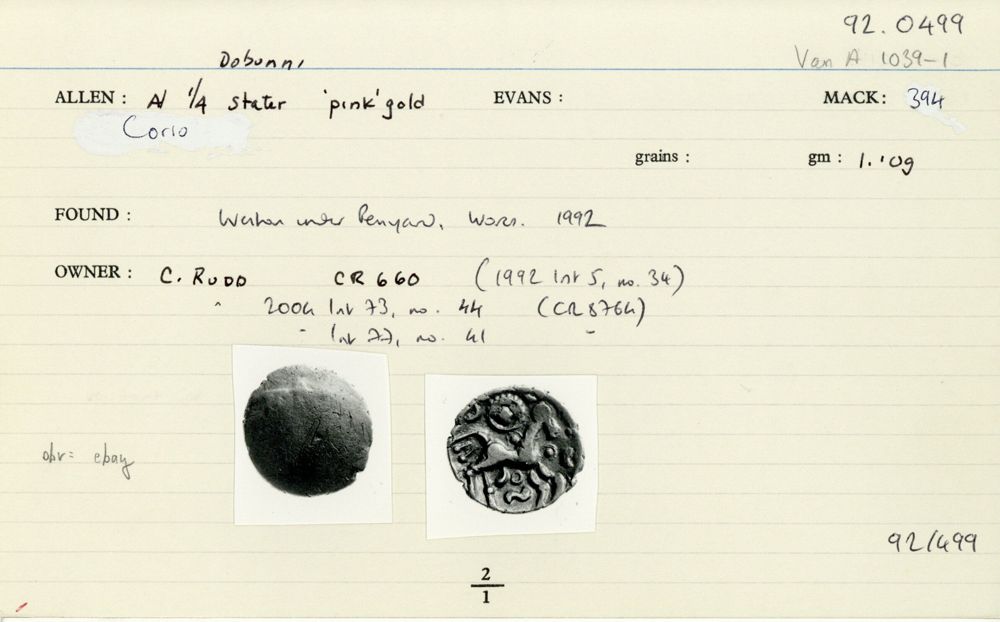 92.0499
Dobunni
Van A 1039-1
ALLEN : AV 1/4 stater 'pink' gold EVANS : MACK: 394
Corio
grains : gm : 1.10g
FOUND : Weston under Penyard, Worcs. 1992
OWNER : C. RUDD CR 660 (1992 list 5, no. 34)
" 2004 list 73, no. 44 (CR 8764)
" list 77, no. 41 "
obv = ebay
92/499
2
1